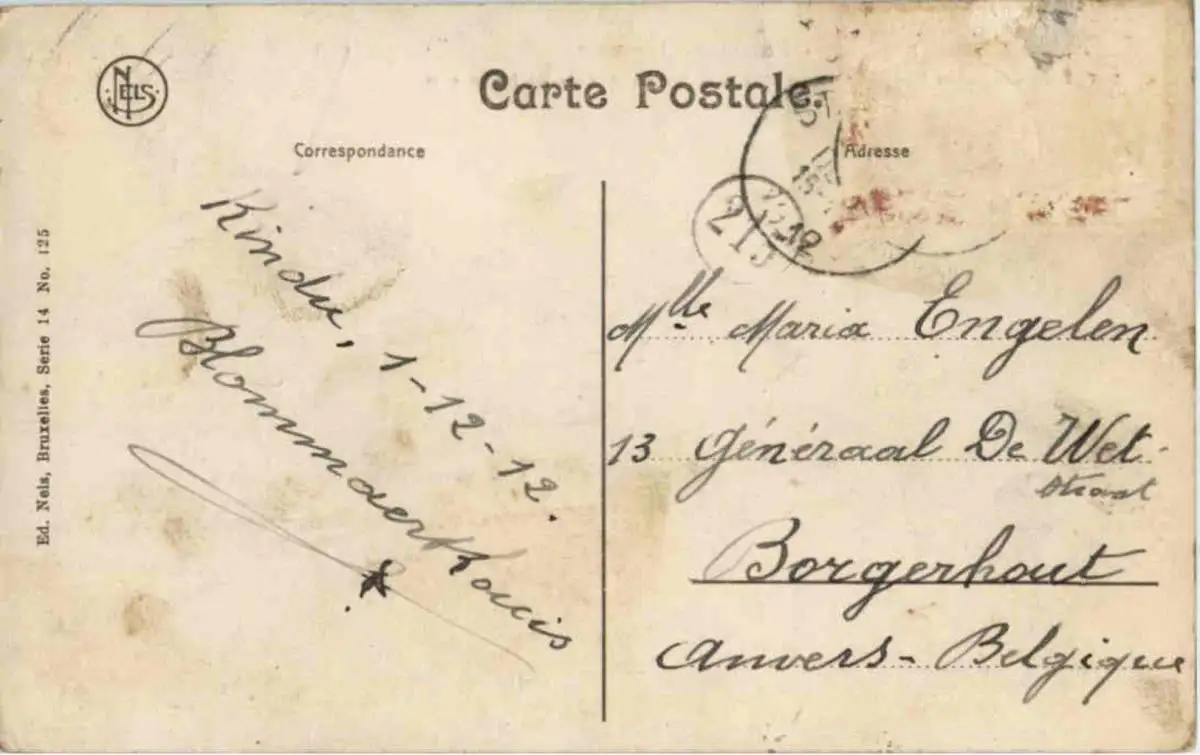 NELS
Carte Postale.
Correspondance
Adresse
213
12
Kindu, 1-12-12.
Blommaert Louis
Mlle Maria Engelen
13 Généraal De Wet-
straat
Borgerhout
Anvers - Belgique
Ed. Nels, Bruxelles, Serie 14 No. 125